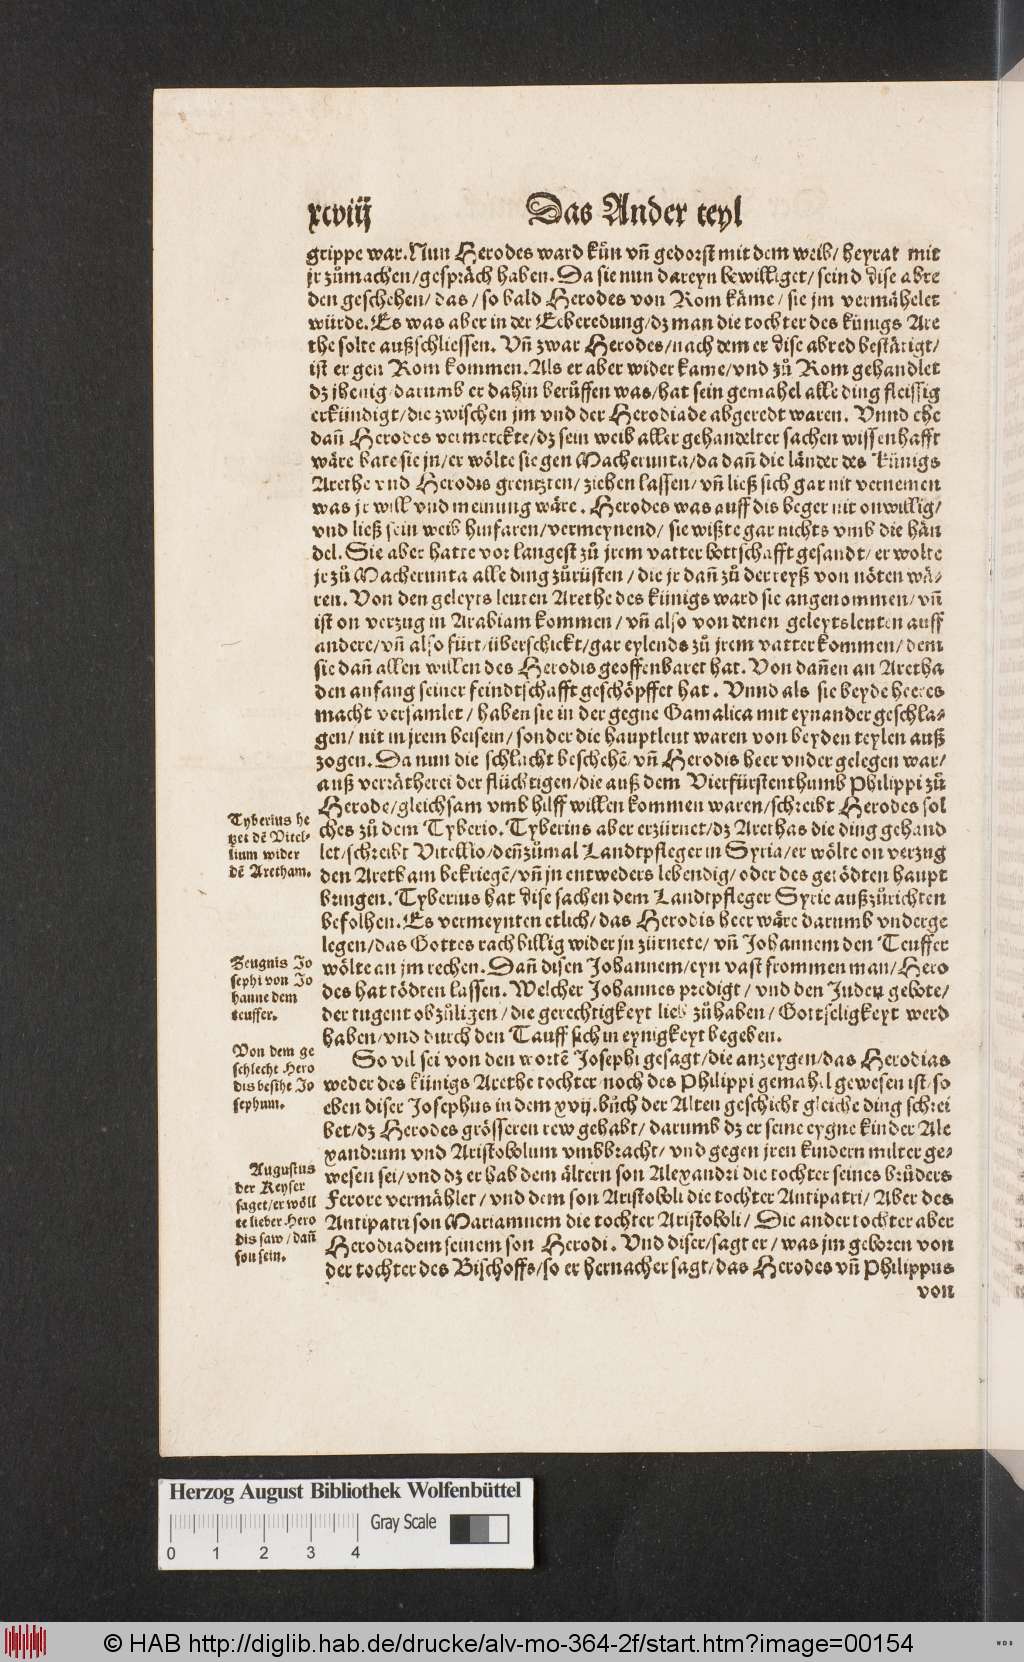 xcviij
Das Ander teyl
grippe war. Nun Herodes ward kůn vñ gedorst mit dem weib/ heyrat mit
jr zůmachen/gespräch haben. Da sie nun dareyn bewilliget/ seind dise abre
den geschehen/ das/ so bald Herodes von Rom käme/ sie jm vermähelet
würde. Es was aber in der Eeberedung/dz man die tochter des künigs Are
the solte außschliessen. Vñ zwar Herodes/nach dem er dise abred bestätigt/
ist er gen Rom kommen. Als er aber wider kame/vnd zů Rom gehandlet
dz jhenig/darumb er dahin berůffen was/hat sein gemahel alle ding fleissig
erkündigt/die zwischen jm vnd der Herodiade abgeredt waren. Vnnd ehe
dañ Herodes vermerckte/dz sein weib aller gehandelter sachen wissenhafft
wäre bate sie jn/er wölte sie gen Macherunta/da dañ die länder des Künigs
Arethe vnd Herodis grentzten/ ziehen lassen/ vñ ließ sich gar nit vernemen
was jr will vnd meinung wäre. Herodes was auff dis beger nit onwillig/
vnd ließ sein weib hinfaren/vermeynend/ sie wißte gar nichts vmb die hän
del. Sie aber hatte vor langest zů jrem vatter bottschafft gesandt/ er wolte
jr zů Macherunta alle ding zůrüsten/ die jr dañ zů der reyß von nöten wä-
ren. Von den geleyts leuten Arethe des künigs ward sie angenommen/ vñ
ist on verzug in Arabiam kommen/ vñ also von denen geleytsleuten auff
andere/vñ also fürt/überschickt/gar eylends zů jrem vatter kommen/ dem
sie dañ allen willen des Herodis geoffenbaret hat. Von dañen an Aretha
den anfang seiner feindtschafft geschöpffet hat. Vnnd als sie beyde heeres
macht versamlet/ haben sie in der gegne Gamalica mit eynander geschla-
gen/ nit in jrem beisein/ sonder die hauptleut waren von beyden teylen auß
zogen. Da nun die schlacht beschehẽ/ vñ Herodis heer vnder gelegen war/
auß verrätherei der flüchtigen/die auß dem Vierfürstenthumb Philippi zů
Herode/gleichsam vmb hilff willen kommen waren/schreibt Herodes sol
ches zů dem Tyberio. Tyberius aber erzürnet/dz Arethas die ding gehand
let/schreibt Vitellio/deñ zůmal Landtpfleger in Syria/er wölte on verzug
den Aretham bekriegẽ/vñ jn entweders lebendig/ oder des getödten haupt
bringen. Tyberius hat dise sachen dem Landtpfleger Syrie außzůrichten
befolhen. Es vermeynten etlich/das Herodis heer wäre darumb vnderge
legen/das Gottes rach billig wider jn zürnete/ vñ Johannem den Teuffer
wölte an jm rechen. Dañ disen Johannem/eyn vast frommen man/Hero
des hat tödten lassen. Welcher Johannes predigt/ vnd den Juden gebote/
der tugent obzůligen/die gerechtigkeyt lieb zůhaben/ Gottseligkeyt werd
haben/vnd durch den Tauff sich in eynigkeyt begeben.
So vil sei von den wortẽ Josephi gesagt/die anzeygen/das Herodias
weder des künigs Arethe tochter/noch des Philippi gemahel gewesen ist/so
eben diser Josephus in dem xvij. bůch der Alten geschicht gleiche ding schrei
bet/dz Herodes grösseren rew gehabt/ darumb dz er seine eygne kinder Ale
xandrum vnd Aristobolum vmbbracht/ vnd gegen jren kindern milter ge-
wesen sei/vnd dz er hab dem ältern son Alexandri die tochter seines brůders
Ferore vermählet/ vnd dem son Aristoboli die tochter Antipatri/ Aber des
Antipatri son Mariamnem die tochter Aristoboli/ Die ander tochter aber
Herodiadem seinem son Herodi. Vnd diser/sagt er/ was jm geboren von
der tochter des Bischoffs/so er hernacher sagt/das Herodes vñ Philippus
von
Tyberius he
tzet dẽ Vitel-
lium wider
dẽ Aretham.
Zeugnis Jo
sephi von Jo
hanne dem
teuffer.
Von dem ge
schlecht Hero
dis besihe Jo
sephum.
Augustus
der Keyser
saget/er wöll
te lieber Hero
dis saw/dañ
son sein.
Herzog August Bibliothek Wolfenbüttel
Gray Scale
0 1 2 3 4
© HAB http://diglib.hab.de/drucke/alv-mo-364-2f/start.htm?image=00154